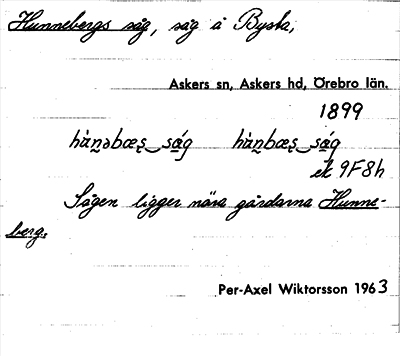 Hunnebergs såg, såg å Bysta,
Askers sn, Askers hd, Örebro län.
1899
hɐ̀n̥əbœȩs̮ság hɐ̀n̥bœȩs̮ság
ek 9F8h
Sågen ligger nära gårdarna Hunne-
berg.
Per-Axel Wiktorsson 1963